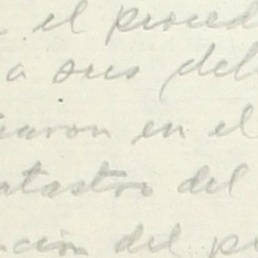 el proced
a sus del
aron en el
catastro del
ción del pr